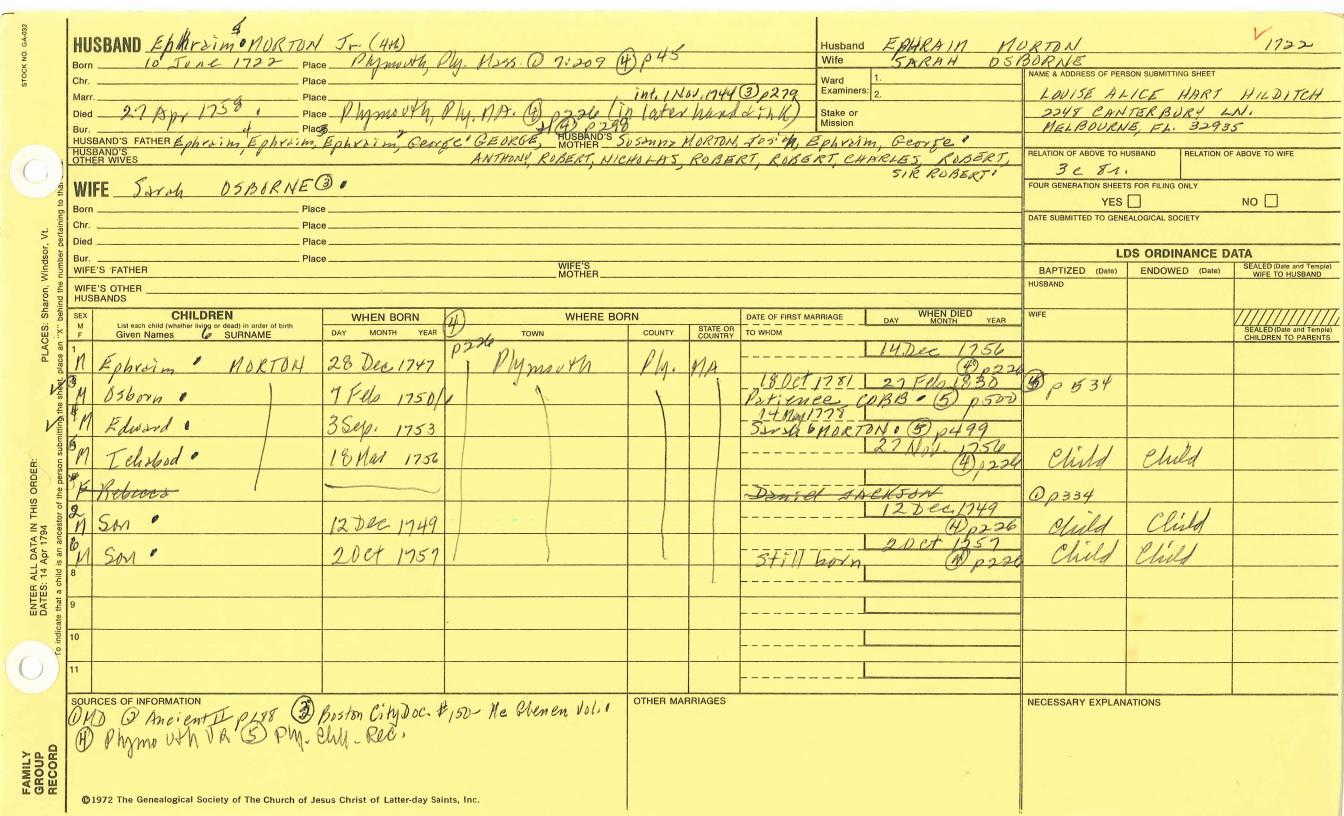 STOCK NO. GA-032
HUSBAND Ephraim MORTON Jr. (4th)
Born 10 June 1722 Place Plymouth, Ply. Mass. ① 7:209 ④ p45
Chr. Place
Marr. Place int. 1 Nov. 1744 ③ p279
Died 27 Apr 1758 Place Plymouth, Ply. MA. ④ p226 (in later hand & ink)
Bur. Place
HUSBAND'S FATHER Ephraim, Ephraim, Ephraim, George GEORGE, HUSBAND'S MOTHER Susanna MORTON, Josiah, Ephraim, George
HUSBAND'S OTHER WIVES ANTHONY, ROBERT, NICHOLAS, ROBERT, ROBERT, CHARLES, ROBERT,
SIR ROBERT
Husband EPHRAIM MORTON 1722
Wife SARAH OSBORNE
Ward Examiners: 1.
2.
Stake or Mission
NAME & ADDRESS OF PERSON SUBMITTING SHEET
LOUISE ALICE HART HILDITCH
2248 CANTERBURY LN.
MELBOURNE, FL. 32935
RELATION OF ABOVE TO HUSBAND RELATION OF ABOVE TO WIFE
3c 8r.
FOUR GENERATION SHEETS FOR FILING ONLY
YES NO
DATE SUBMITTED TO GENEALOGICAL SOCIETY
WIFE Sarah OSBORNE ③
Born Place
Chr. Place
Died Place
Bur. Place
WIFE'S FATHER WIFE'S MOTHER
WIFE'S OTHER HUSBANDS
LDS ORDINANCE DATA
BAPTIZED (Date) ENDOWED (Date) SEALED (Date and Temple) WIFE TO HUSBAND
HUSBAND
WIFE
SEALED (Date and Temple) CHILDREN TO PARENTS
SEX M F CHILDREN WHEN BORN ④ WHERE BORN DATE OF FIRST MARRIAGE WHEN DIED
List each child (whether living or dead) in order of birth
Given Names 6 SURNAME DAY MONTH YEAR p226 TOWN COUNTY STATE OR COUNTRY TO WHOM DAY MONTH YEAR
1 M Ephraim MORTON 28 Dec 1747 Plymouth Ply. MA 14 Dec 1756
④ p226
18 Oct 1781 27 Feb 1830 p 534
3 M Osborn 7 Feb 1750/1 Patience COBB ⑤ p500
14 May 1778
4 M Edward 3 Sep. 1753 Sarah MORTON ⑤ p499
27 Nov. 1756
5 M Ichabod 18 Mar 1756 ④ p226 Child Child
F Rebecca Daniel JACKSON ① p334
12 Dec 1749
2 M Son 12 Dec 1749 ④ p226 Child Child
2 Oct 1757
6 M Son 2 Oct 1757 Still born ④ p226 Child Child
8
9
10
11
SOURCES OF INFORMATION OTHER MARRIAGES NECESSARY EXPLANATIONS
① MD ② Ancient II p188 ③ Boston City Doc. # 150- Mc Glenen Vol.
④ Plymouth VR ⑤ Ply. Chh. Rec.
©1972 The Genealogical Society of The Church of Jesus Christ of Latter-day Saints, Inc.
PLACES: Sharon, Windsor, Vt.
ENTER ALL DATA IN THIS ORDER:
DATES: 14 Apr 1794
To indicate that a child is an ancestor of the person submitting the sheet, place an "X" behind the number pertaining to that
FAMILY GROUP RECORD